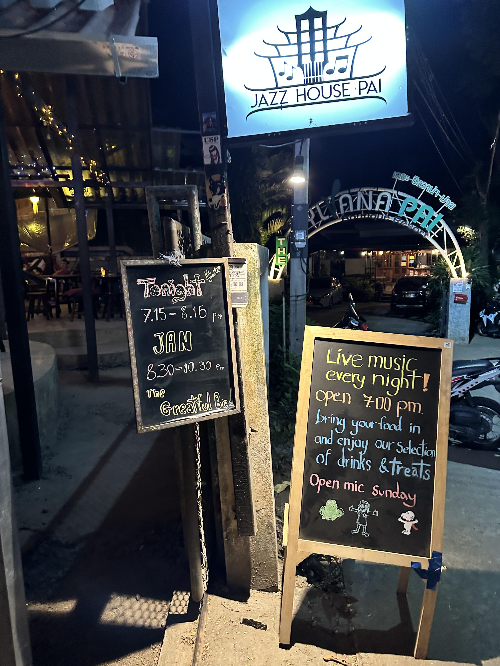 JAZZ HOUSE · PAI
ANA PAI
Tonight
7.15 - 8.15 pm
JAN
8.30 - 10.30 pm
The
Greatful
Live music
every night!
open 7:00 pm.
bring your food in
and enjoy our selection
of drinks & treats
Open mic Sunday